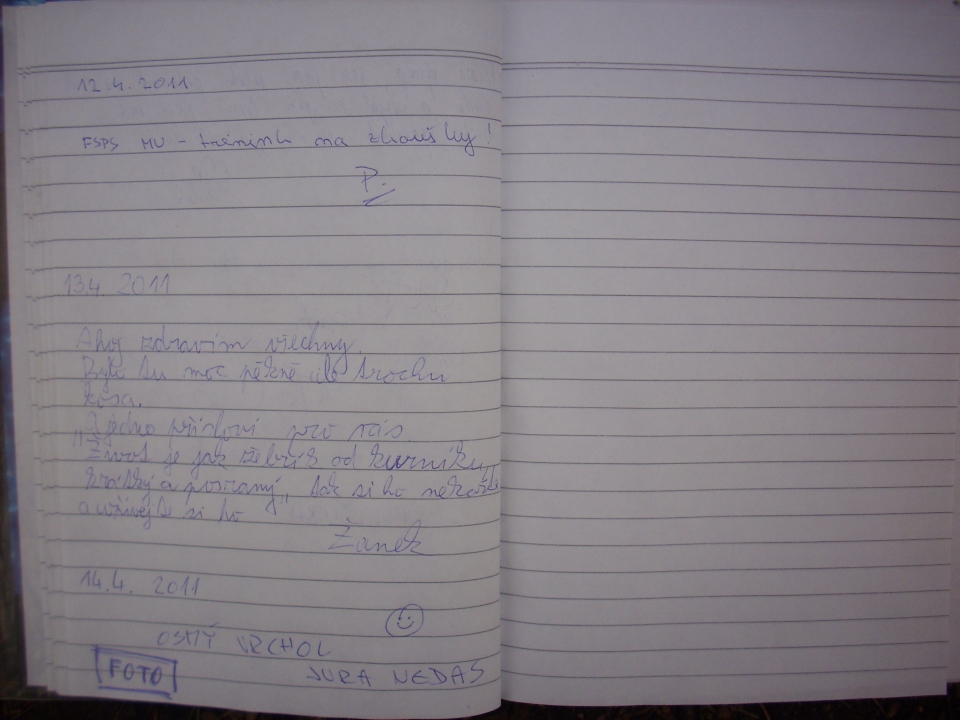 12.4.2011
FSPS MU - trénink na zkoušky!
P.
13.4. 2011
Ahoj zdravím všechny.
Bylo tu moc pěkně ale trochu
kosa.
A jedno přísloví pro vás.
"Život je jak žebřík od kurníku,
krátký a posraný" tak si ho nekažte
a užívejte si ho
Žanek
14.4. 2011
OSMÝ VRCHOL
FOTO JURA NEDAS